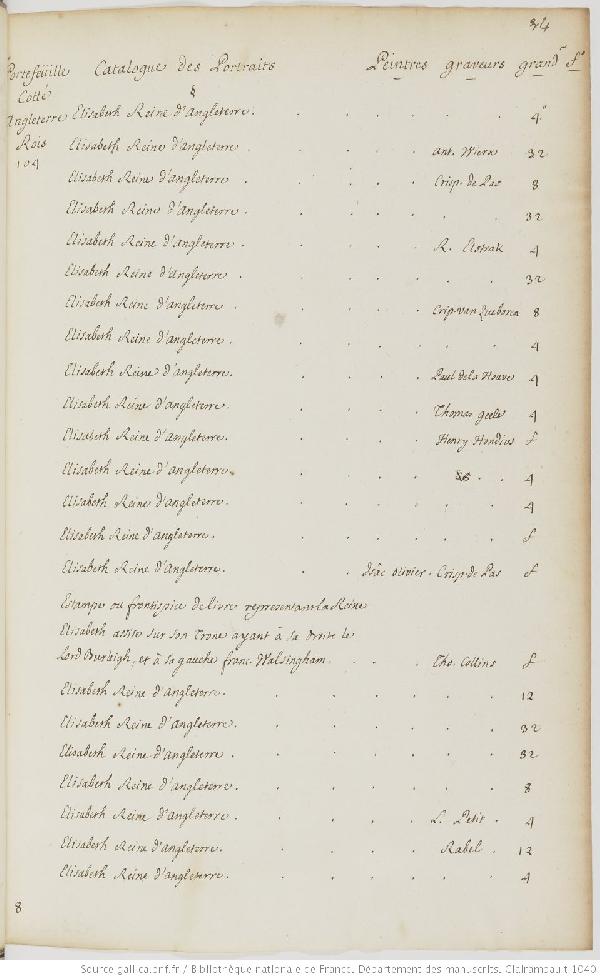 84
Portefeuille Catalogue des Portraits Peintres graveurs grandr fo
Cotté
Angleterre
Rois
104
§
Elisabeth Reine d'Angleterre. 4o
Elisabeth Reine d'Angleterre Ant. Wierx 32
Elisabeth Reine d'Angleterre Crisp. de Pas 8
Elisabeth Reine d'Angleterre 32
Elisabeth Reine d'Angleterre R. Elstrak 4
Elisabeth Reine d'Angleterre 32
Elisabeth Reine d'Angleterre Crip. van Queboren 8
Elisabeth Reine d'Angleterre 4
Elisabeth Reine d'Angleterre. Paul dela Houve 4
Elisabeth Reine d'Angleterre. Thomas geele 4
Elisabeth Reine d'Angleterre. Henry Hondius f
Elisabeth Reine d'Angleterre 4
Elisabeth Reine d'Angleterre. 4
Elisabeth Reine d'Angleterre. f
Elisabeth Reine d'Angleterre. Isac Olivier. Crisp. de Pas f
Estampe ou frontispice de livre representant la Reine
Elisabeth assise sur son Trone ayant à sa droite le
Lord Burleigh, et à sa gauche franc. Walsingham. Tho. Collins f
Elisabeth Reine d'Angleterre. 12
Elisabeth Reine d'Angleterre. 32
Elisabeth Reine d'Angleterre. 32
Elisabeth Reine d'Angleterre. 8
Elisabeth Reine d'Angleterre. L. Petit. 4
Elisabeth Reine d'Angleterre. Rabel. 12
Elisabeth Reine d'Angleterre. 4
8
Source gallica.bnf.fr / Bibliothèque nationale de France. Département des manuscrits. Clairambault 1040